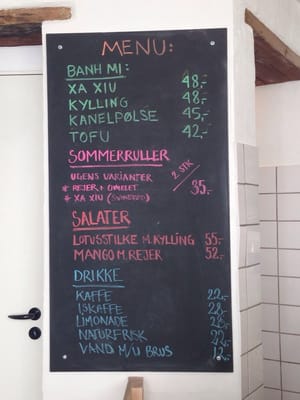 MENU:
BANH MI:
XA XIU 48,-
KYLLING 48,-
KANELPØLSE 45,-
TOFU 42,-
SOMMERRULLER
UGENS VARIANTER 2 STK
* REJER + OMELET 35,-
* XA XIU (SVINEKØD)
SALATER
LOTUSSTILKE M. KYLLING 55,-
MANGO M. REJER 52,-
DRIKKE
KAFFE 22,-
ISKAFFE 28,-
LIMONADE 22,-
NATURFRISK 22,-
VAND M/U BRUS 12,-